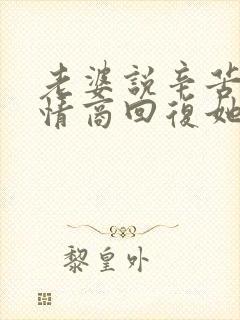 老婆說辛苦
情商回復她
黎皇外